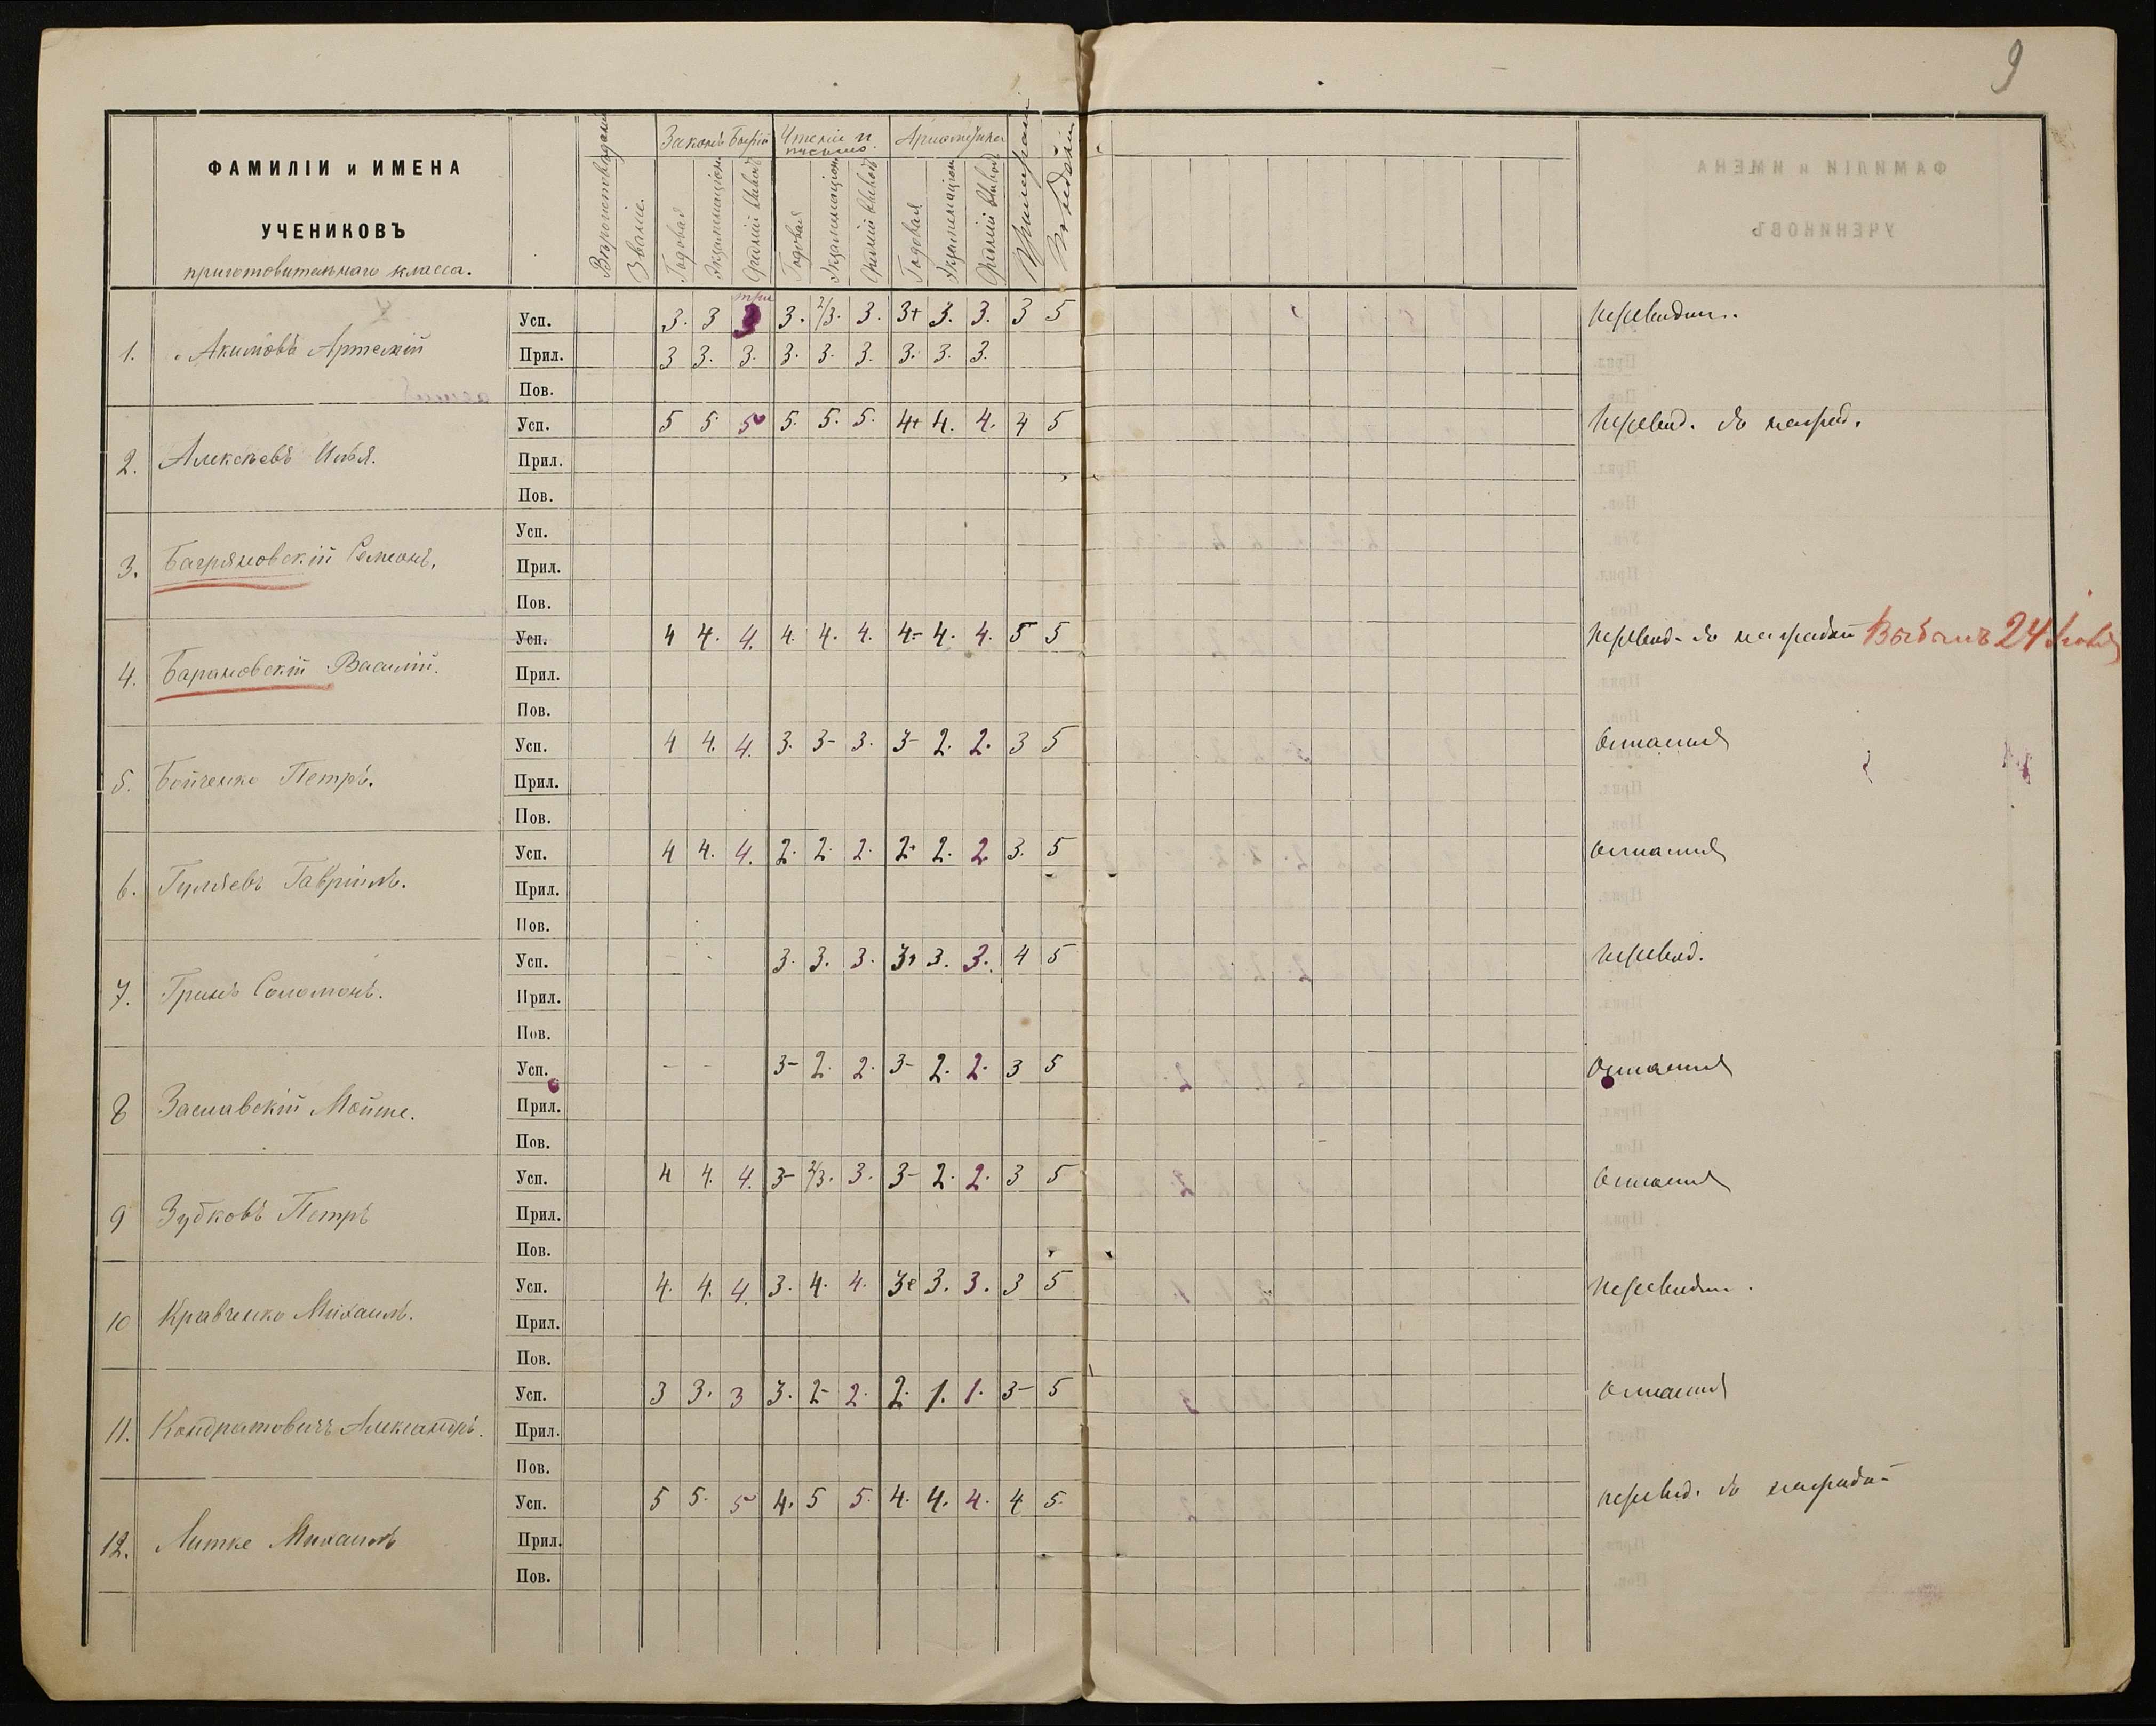 9
ФАМИЛІИ и ИМЕНА
УЧЕНИКОВЪ
приготовительнаго класса.
Вѣроисповѣданіе
Званіе.
Законъ Божій
Чтеніе и письмо.
Ариѳметика
Годовая
Экзаменаціон.
Средній выводъ
Годовая
Экзаменаціон.
Средній выводъ
Годовая
Экзаменаціон.
Средній выводъ
Прилежаніе
Поведеніе
три
1. Акимовъ Артемій
Усп. 3. 3 3 3. 2/3. 3. 3+ 3. 3. 3 5 переводит.
Прил. 3 3. 3. 3. 3. 3. 3. 3. 3.
Пов.
2. Алексѣевъ Илья.
Усп. 5 5 5 5. 5. 5. 4+ 4. 4. 4 5 перевод. съ наград.
Прил.
Пов.
3. Багряновскій Семенъ.
Усп.
Прил.
Пов.
4. Барановскій Василій.
Усп. 4 4. 4. 4. 4. 4. 4- 4. 4. 5 5 перевод. съ наградой Выбылъ 24
Прил.
Пов.
5. Бойченко Петръ.
Усп. 4 4. 4. 3. 3- 3. 3- 2. 2. 3 5 остается
Прил.
Пов.
6. Гуляевъ Гавріилъ.
Усп. 4 4. 4. 2. 2. 2. 2+ 2. 2. 3. 5 остается
Прил.
Пов.
7. Гринъ Соломонъ.
Усп. - - 3. 3. 3. 3+ 3. 3. 4 5 перевод.
Прил.
Пов.
8 Заславскій Мойше.
Усп. - - 3- 2. 2. 3- 2. 2. 3 5 остается
Прил.
Пов.
9 Зубковъ Петръ
Усп. 4 4. 4. 3- 2/3. 3. 3- 2. 2. 3 5 остается
Прил.
Пов.
10 Кравченко Михаилъ.
Усп. 4. 4. 4. 3. 4. 4. 3+ 3. 3. 3 5 переводит.
Прил.
Пов.
11. Кондратовичъ Александръ.
Усп. 3 3. 3 3. 2- 2. 2. 1. 1. 3- 5 остается
Прил.
Пов.
12. Литке Михаилъ
Усп. 5 5. 5 4. 5 5. 4. 4. 4. 4 5. перевод. съ наградой
Прил.
Пов.